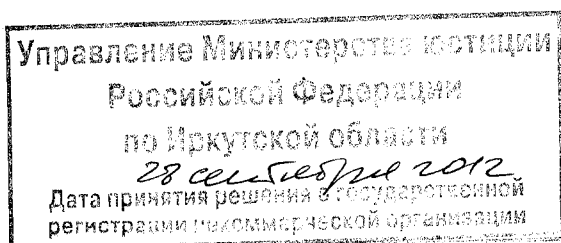 Управление Министерства юстиции
Российской Федерации
по Иркутской области
28 сентября 2012
Дата принятия решения о государственной
регистрации некоммерческой организации